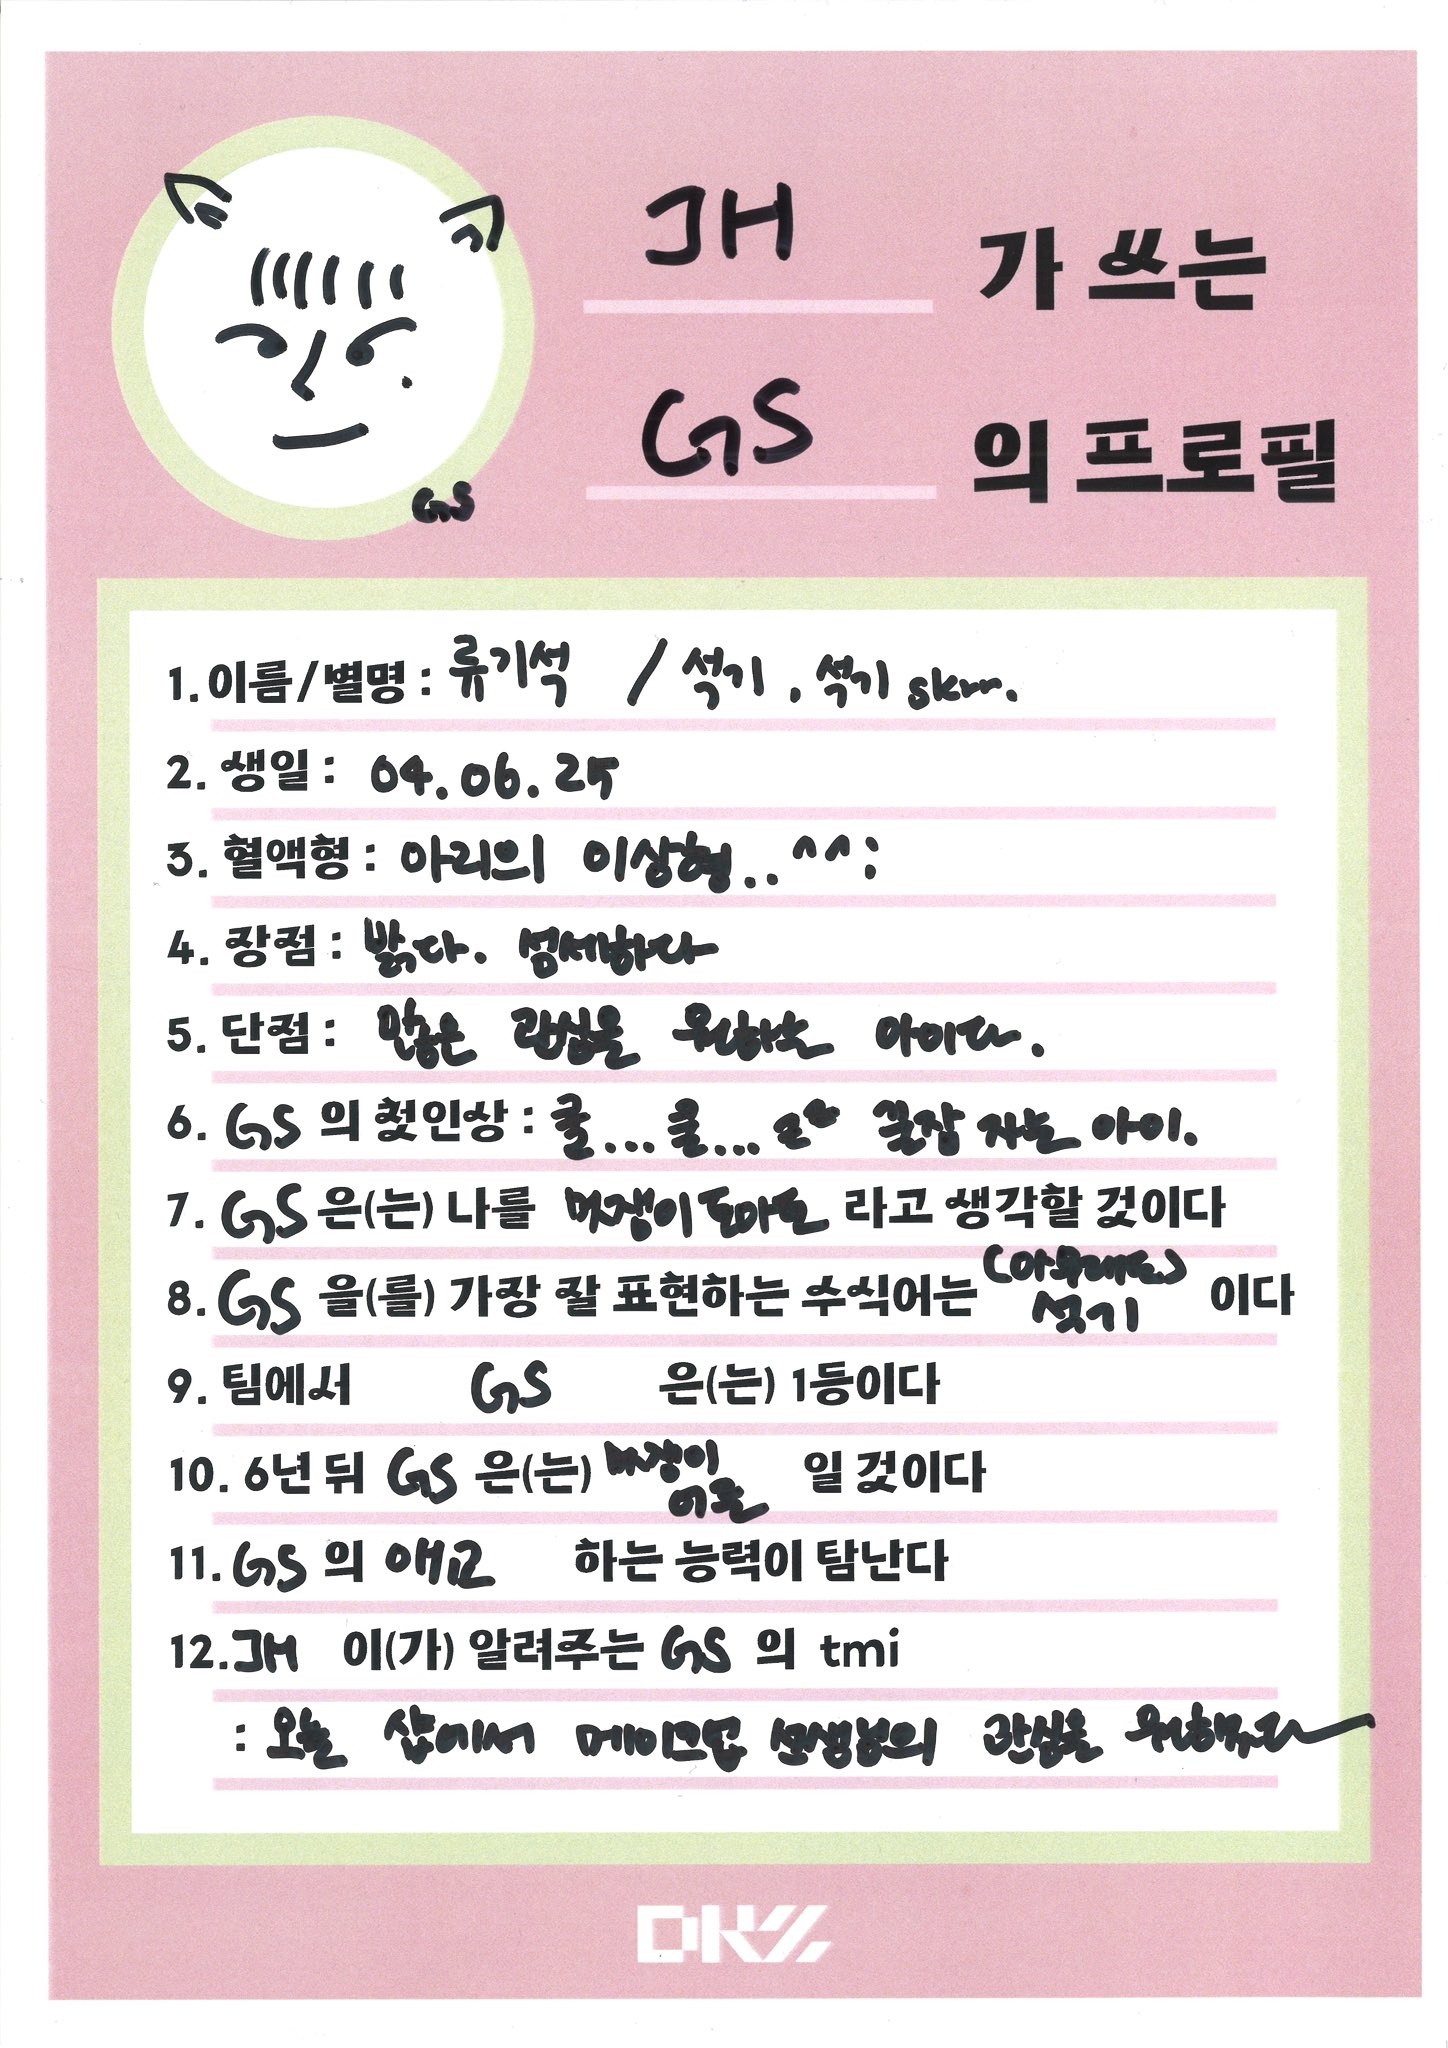 JH 가 쓰는
GS 의 프로필
GS
1. 이름/별명 : 류기석 / 석기. 석기 skrrr.
2. 생일 : 04.06.25
3. 혈액형 : 아리의 이상형..^^;
4. 장점 : 밝다. 섬세하다
5. 단점 : 많은 관심을 원하는 아이다.
6. GS 의 첫인상 : 쿨...쿨...zzz 꿀잠 자는 아이.
7. GS 은(는) 나를 멋쟁이 토마토 라고 생각할 것이다
8. GS 을(를) 가장 잘 표현하는 수식어는 (아무래도) 석기 이다
9. 팀에서 GS 은(는) 1등이다
10. 6년 뒤 GS 은(는) 멋쟁이 어른 일 것이다
11. GS 의 애교 하는 능력이 탐난다
12. JH 이(가) 알려주는 GS 의 tmi
: 오늘 샵에서 메이크업 선생님의 관심을
DKZ